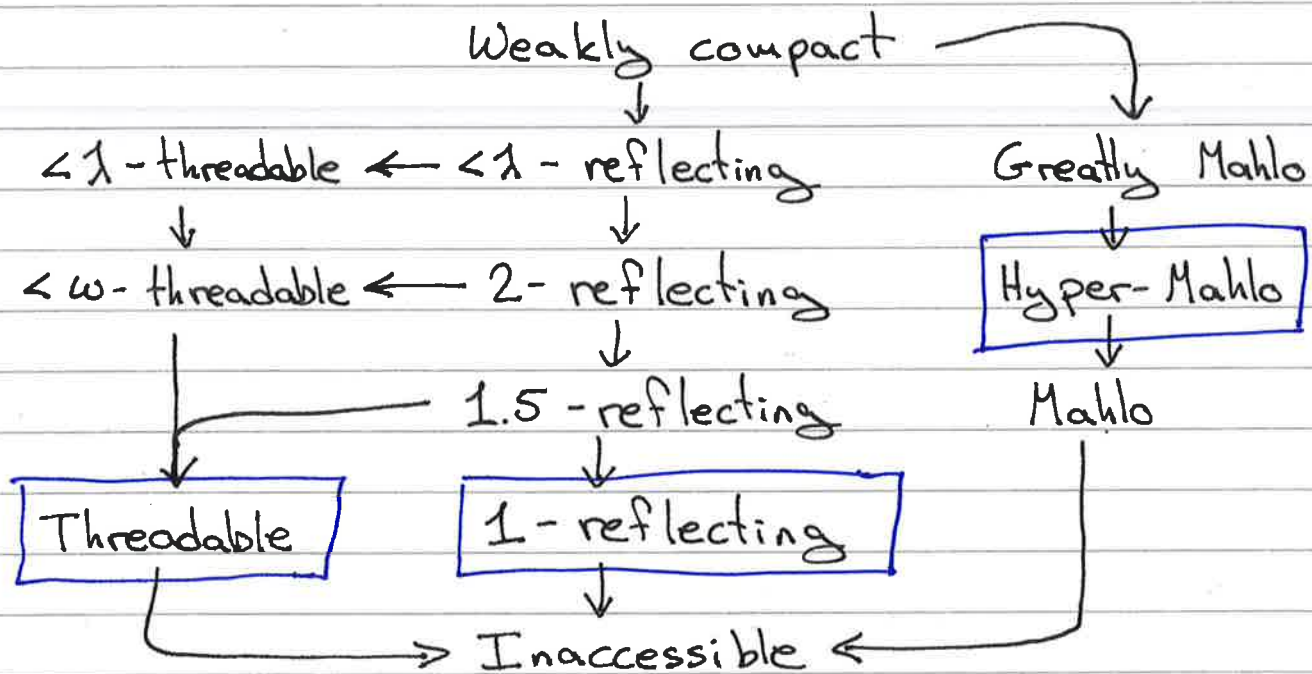 Weakly compact
<λ-threadable ← <λ-reflecting Greatly Mahlo
<ω-threadable ← 2-reflecting Hyper-Mahlo
1.5-reflecting Mahlo
Threadable 1-reflecting
Inaccessible